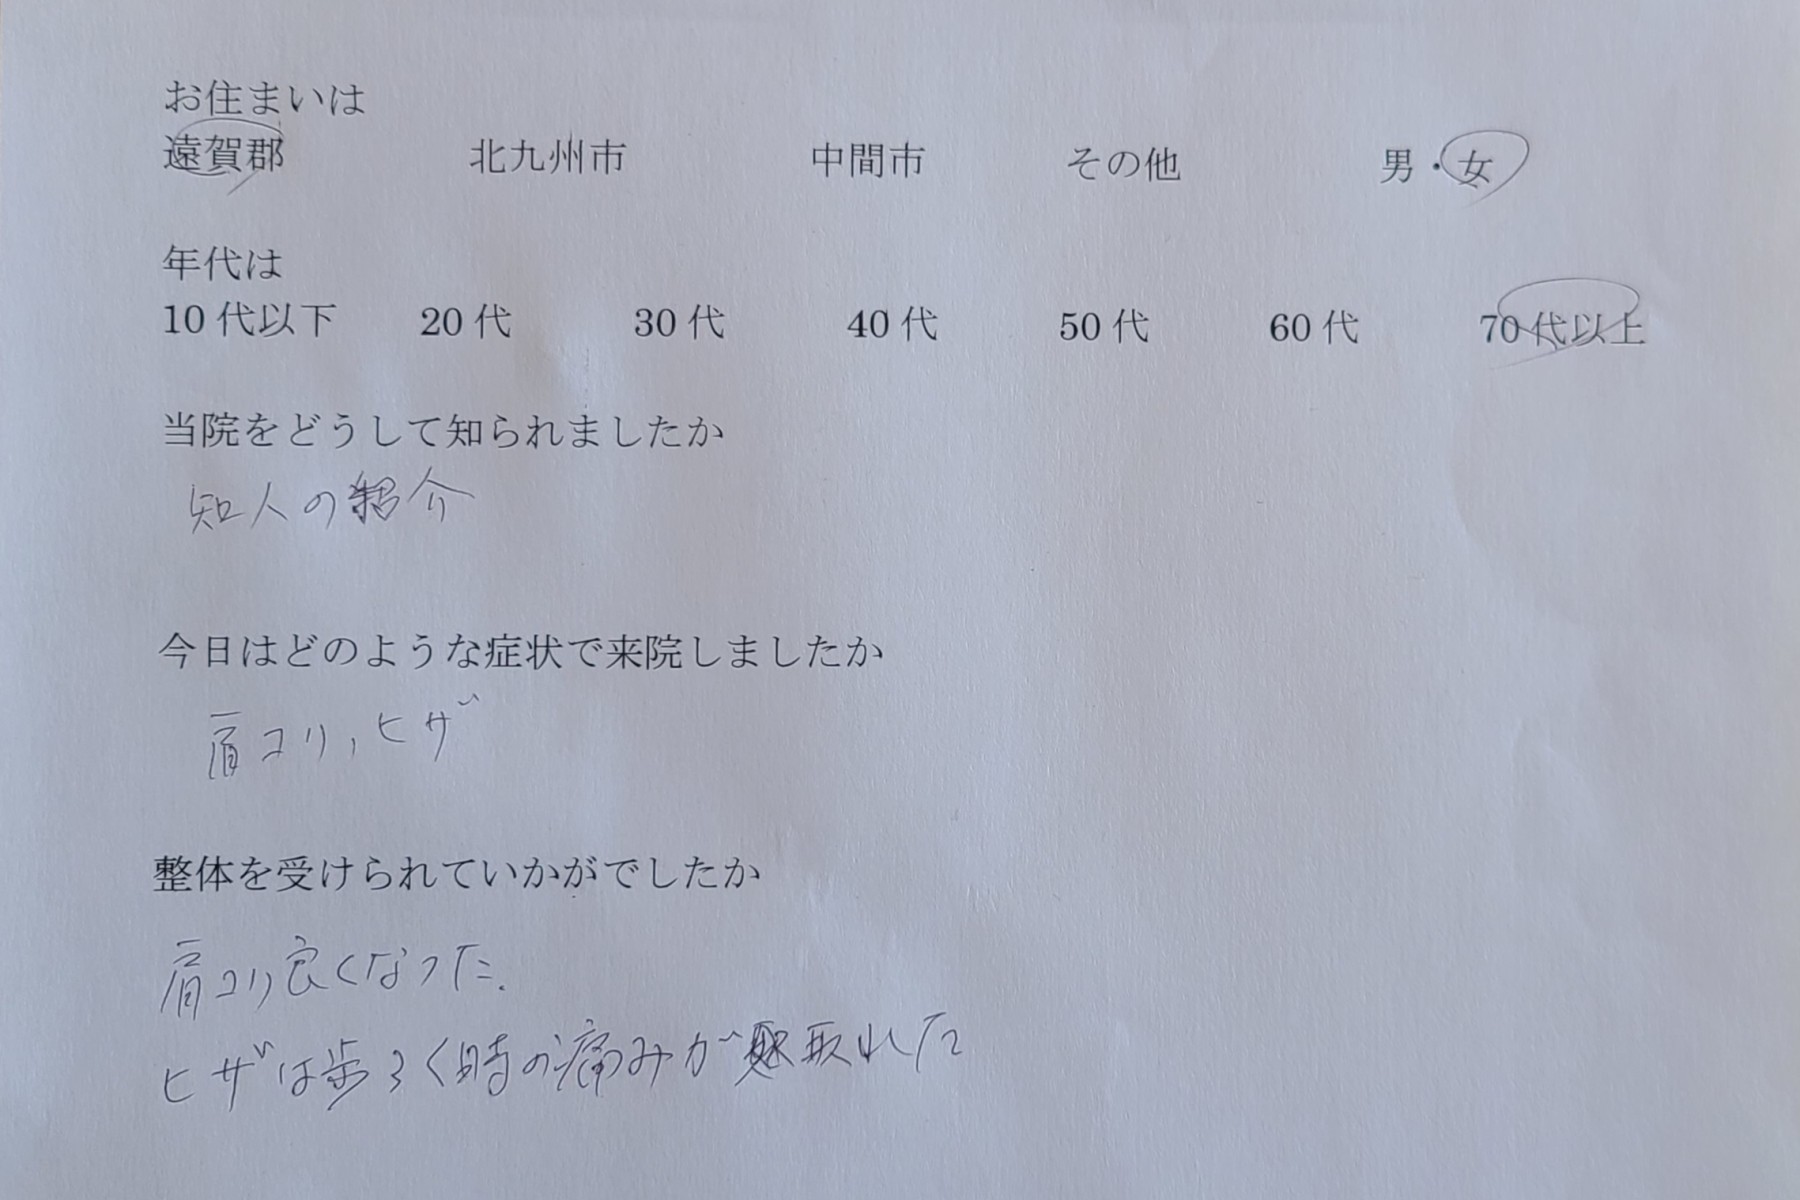 お住まいは
遠賀郡 北九州市 中間市 その他 男・女
年代は
10代以下 20代 30代 40代 50代 60代 70代以上
当院をどうして知られましたか
知人の紹介
今日はどのような症状で来院しましたか
肩コリ,ヒザ
整体を受けられていかがでしたか
肩コリ良くなった.
ヒザは歩ろく時の痛みが取れた